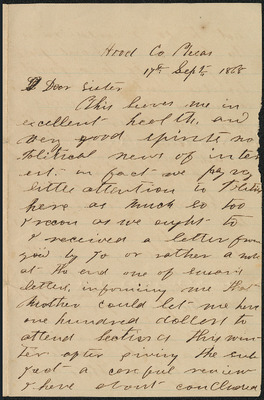 Hood Co Texas
17th Sept 1868
Dear Sister
This leaves me in
excellent health and
very good spirits no
Political news of inter
est in fact we pay
little attention to Politics
here as much so too
I recon as we ought to
I received a letter from
you by Jo or rather a note
at the end one of
letters, informing me that
Mother could let me have
one hundred dollars to
attend lectures this win
ter after giving the sub
ject a careful review
I have about concluded